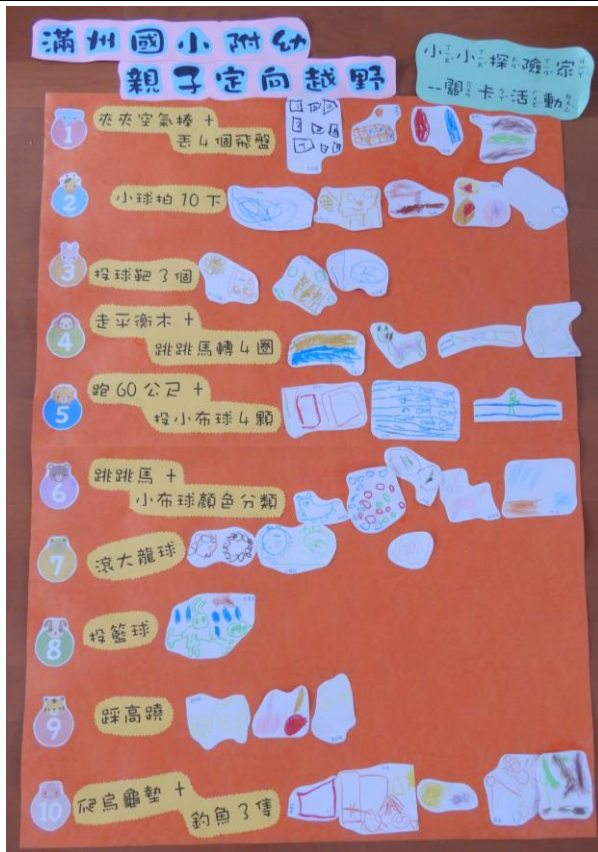 滿州國小附幼
親子定向越野
小小探險家
--關卡活動
1 夾夾空氣棒+
丟4個飛盤
2 小球拍10下
3 投球靶3個
4 走平衡木+
跳跳馬轉4圈
5 跑60公尺+
投小布球4顆
6 跳跳馬+
小布球顏色分類
7 滾大龍球
8 投籃球
9 踩高蹺
10 爬烏龜墊+
釣魚3隻